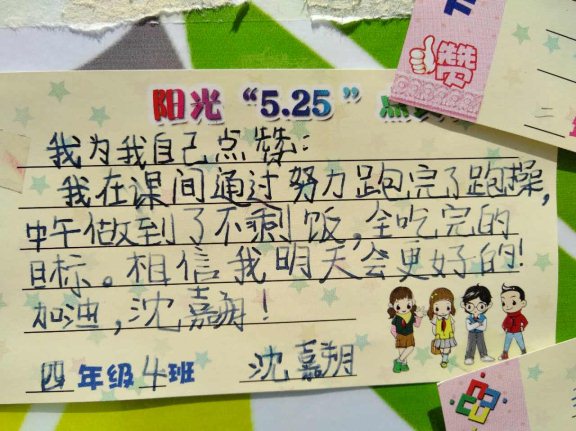 阳光“5.25”点
赞
我为我自己点赞：
我在课间通过努力跑完了跑操，
中午做到了不剩饭，全吃完的
目标。相信我明天会更好的！
加油，沈嘉朔！
四年级4班 沈嘉朔
二